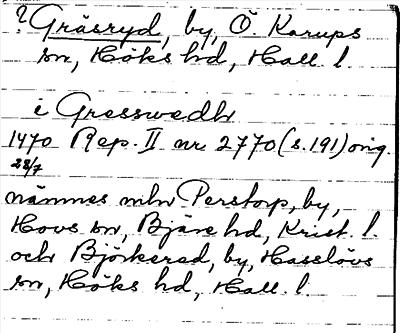 ? Gräsryd, by, Ö. Karups
sn, Höks hd, Hall. l.
i Gresswedh
1470 Rep. II nr 2770 (s. 191) orig.
28/7
nämnes mln Perstorp, by,
Hovs sn, Bjäre hd, Krist. l.
och Björkered, by, Hasslövs
sn, Höks hd, Hall. l.